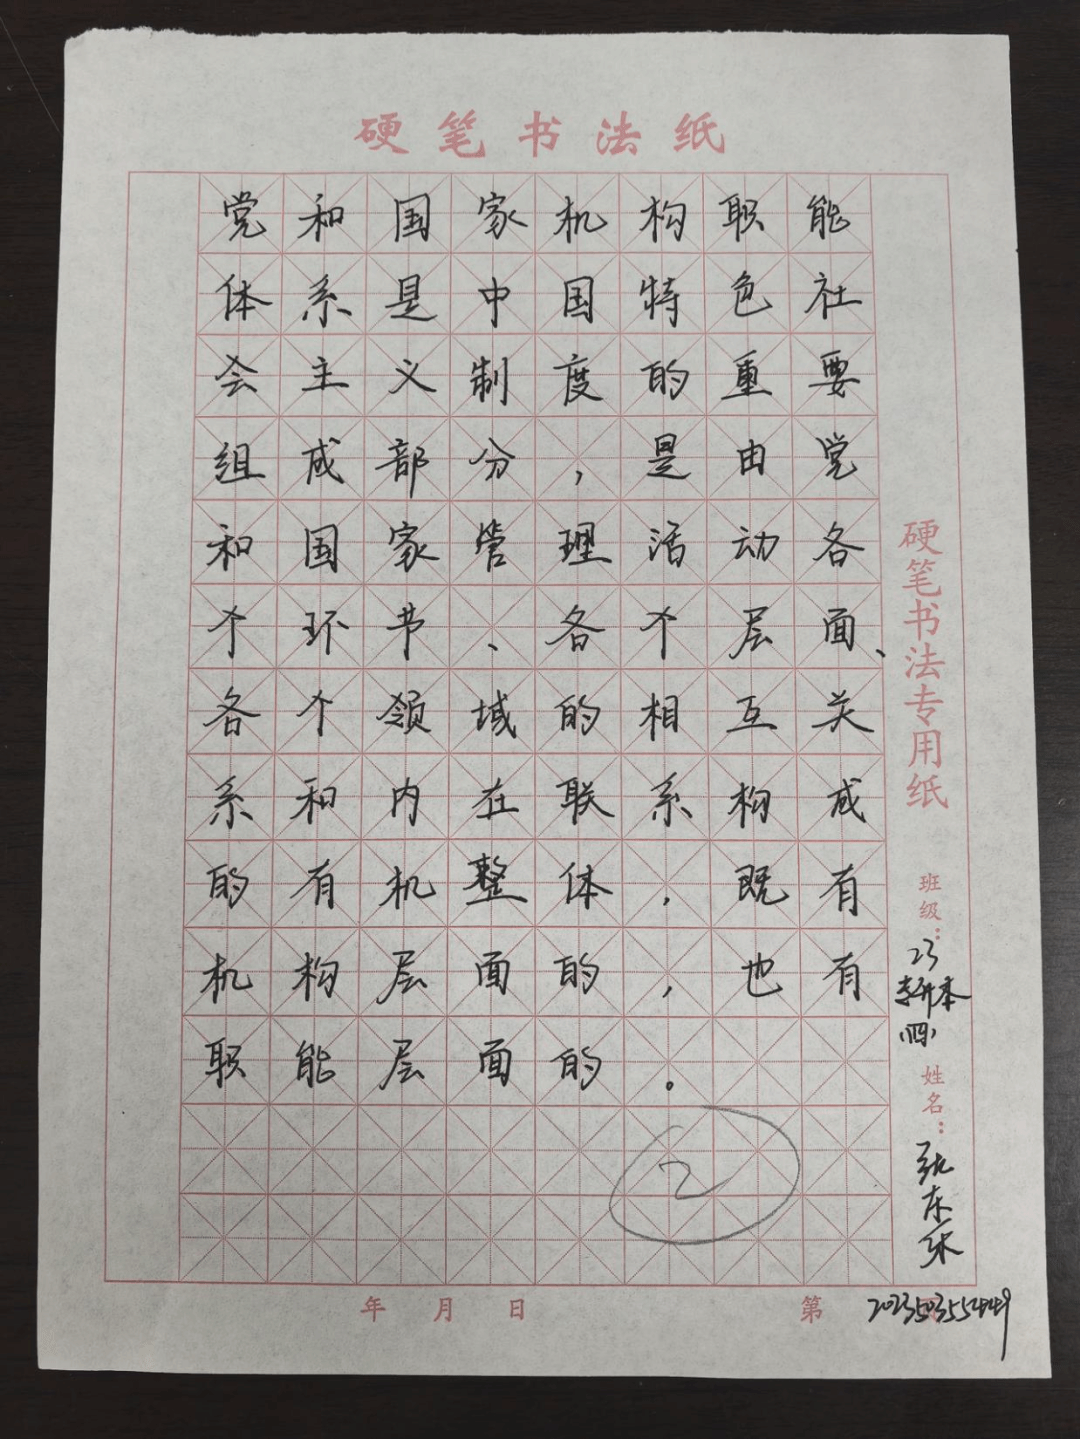 硬笔书法纸
党和国家机构职能
体系是中国特色社
会主义制度的重要
组成部分，是由党
和国家管理活动各
个环节、各个层面、
各个领域的相互关
系和内在联系构成
的有机整体，既有
机构层面的，也有
职能层面的。
2
硬笔书法专用纸
班级：
23
本
(四)
姓名：
张东
年 月 日
第